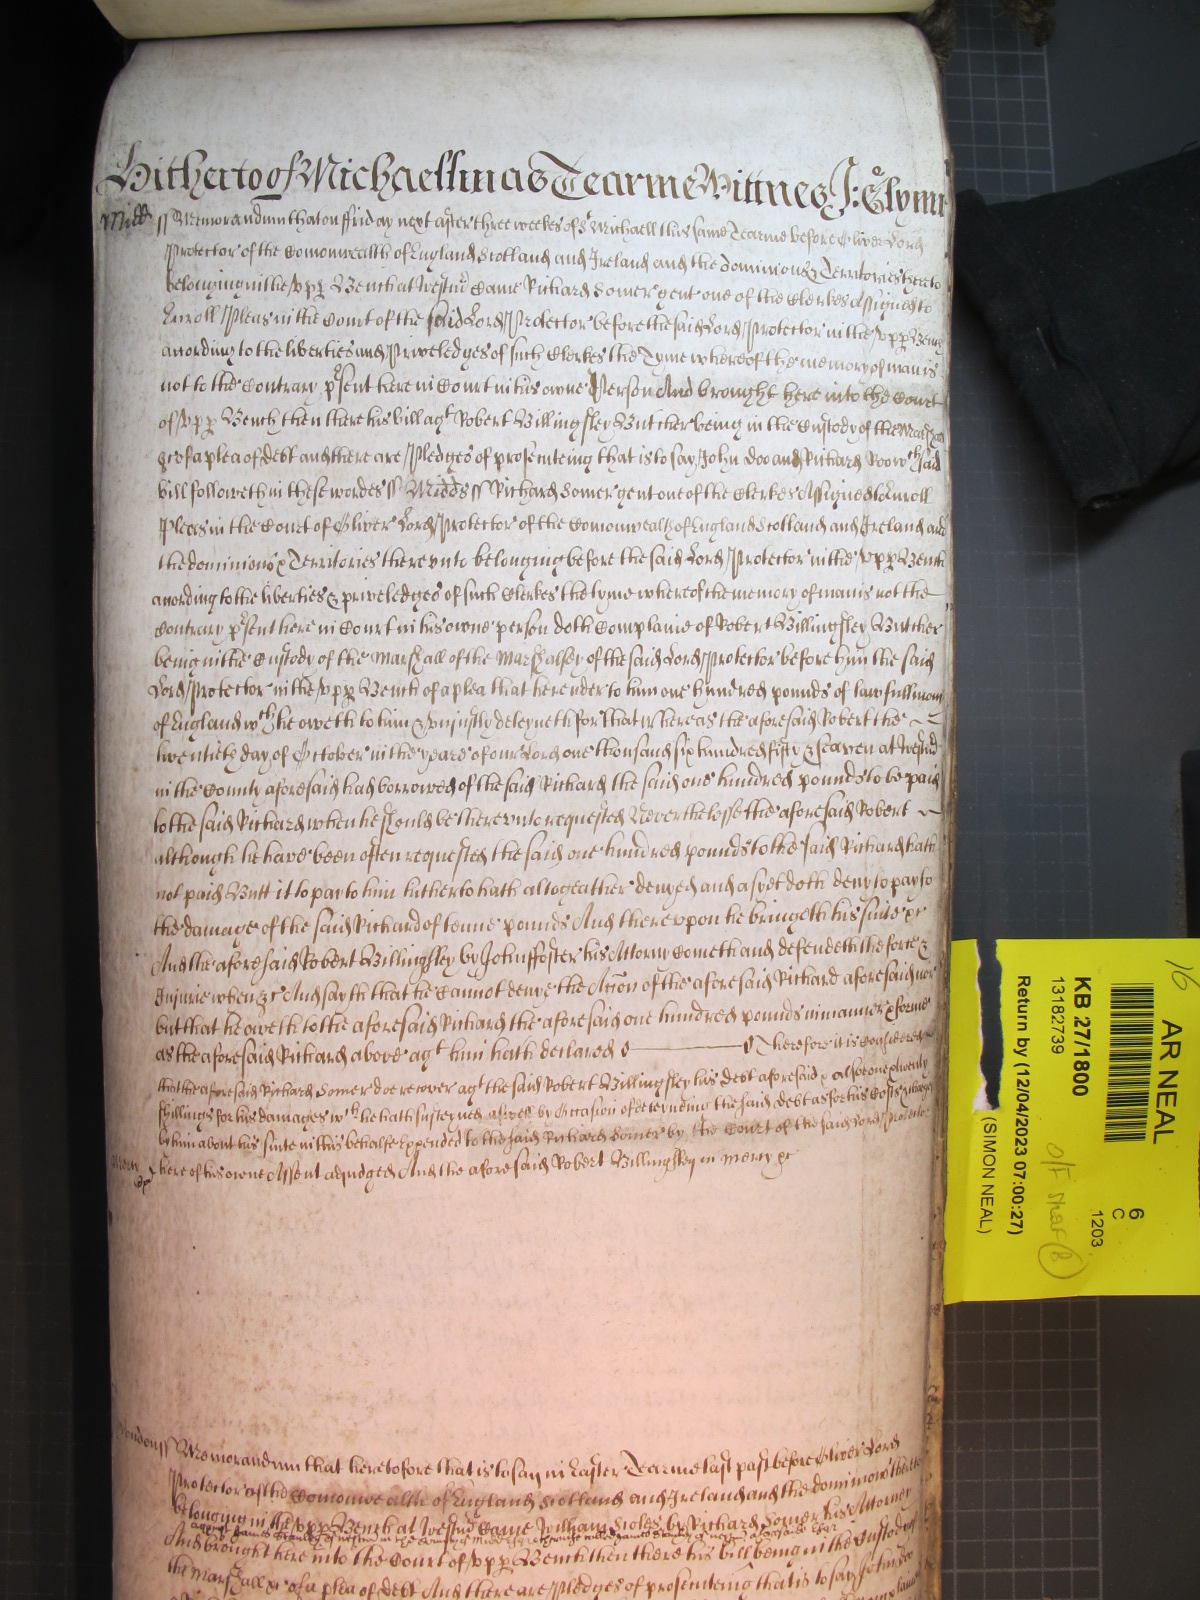 Hitherto of Michaellmas Tearme Wittnes J: Glynn
Midd ss Memorandum that on ffriday next after three weekes of St Michaell this same Tearme before Oliver Lord
Protector of the Comonwealth of England Scotland and Ireland and the dominions & Territories thereto
belonging in the upp Bench at Westmr Came Richard Somer gent one of the Clerkes Assigned to
Enroll Pleas in the Court of the said Lord Protector before the said Lord Protector in the upp Bench
according to the liberties and Priveledges of such Clerkes the Tyme whereof the memory of man is
not to the Contrary psent here in Court in his owne Person And brought here into the Court
of upp Bench then there his bill agt Robert Billingsley Butcher being in the Custody of the Marshall
&c of a plea of debt and there are Pledges of prosecuteing that is to say John Doo and Richard Roo wch said
bill followeth in these wordes ss Midds ss Richard Somer gent one of the Clerkes Assigned to Enroll
Plees in the Court of Oliver Lord Protector of the Comonwealth of England Scotland and Ireland and
the dominions & Territories there unto belonging before the said Lord Protector in the upp Bench
according to the liberties & priveledges of such Clerkes the tyme whereof the memory of man is not the
Contrary psent here in Court in his owne person doth Complaine of Robert Billingsley Butcher
being in the Custody of the Marshall of the Marshalsey of the said Lord Protector before him the said
Lord Protector in the upp Bench of a plea that he render to him one hundred pounds of lawfull mony
of England wch he oweth to him & uniustly deteyneth for that whereas the aforesaid Robert the
twentieth day of October in the yeare of our Lord one thousand six hundred fifty & seaven at Westmr
in the County aforesaid had borrowed of the said Richard the said one hundred pounds to be paid
to the said Richard when he should be there unto requested Neverthelesse the aforesaid Robert
although he have been often requested the said one hundred pounds to the said Richard hath
not paid Butt it to pay to him hitherto hath altogeather denyed and as yet doth deny to pay to
the damage of the said Richard of tenne pounds And thereupon he bringeth his suite &c
And the aforesaid Robert Billingsley by John ffoster his Attorny Cometh and defendeth the force &
Injurie when &c And sayth that he Cannot denye the Accon of the aforesaid Richard aforesaid nor
but that he oweth to the aforesaid Richard the aforesaid one hundred pounds in manner & forme
as the aforesaid Richard above agt him hath declared Therefore it is Considered
that the aforesaid Richard Somer doe recover agt the said Robert Billingsley his debt aforesaid & also one & twenty
shillings for his damages wch he hath susteyned aswell by Occasion of deteyneing the said debt as for his Costs & charges
by him about his suite in this behalfe Expended to the said Richard Somer by the Court of the said Lord Protector
here of his owne Assent adjudged And the aforesaid Robert Billingsley in mercy &c
London ss Memorandum that heretofore that is to say in Easter Tearme last past before Oliver Lord
Protector of the Comonwealth of England Scotland and Ireland and the dominions thereto
belonging in the upp Bench at Westmr Came William Stoles by Richard Somer his Attorney
And brought here into the Court of upp Bench then there his bill being in the Custody of
the Marshall &c of a plea of debt And there are Pledges of prosecuteing that is to say John Doo
16
AR NEAL
KB 27/1800
13182739
Return by (12/04/2023 07:00:27)
(SIMON NEAL)
6
C
1203